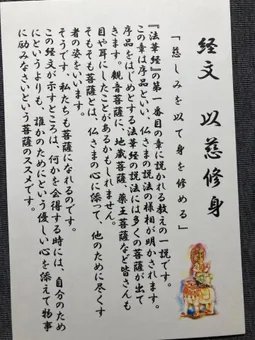 経文 以慈修身
「慈しみを以て身を修める」
『法華経』の第一番目の章に説かれる教えの一説です。
この章は序品といい、仏さまの説法の様相が明かされます。
序品をはじめとする法華経の説法には多くの菩薩が出て
きます。観音菩薩に、地蔵菩薩、薬王菩薩など皆さんも
目や耳にしたことがあるかもしれません。
そもそも菩薩とは、仏さまの心に添って、他のために尽くす
者の姿をいいます。
そうです、私たちも菩薩になれるのです。
この経文が示すところは、何かを会得する時には、自分のため
にというよりも、誰かのためにという優しい心を添えて物事
に励みなさいという菩薩のススメです。